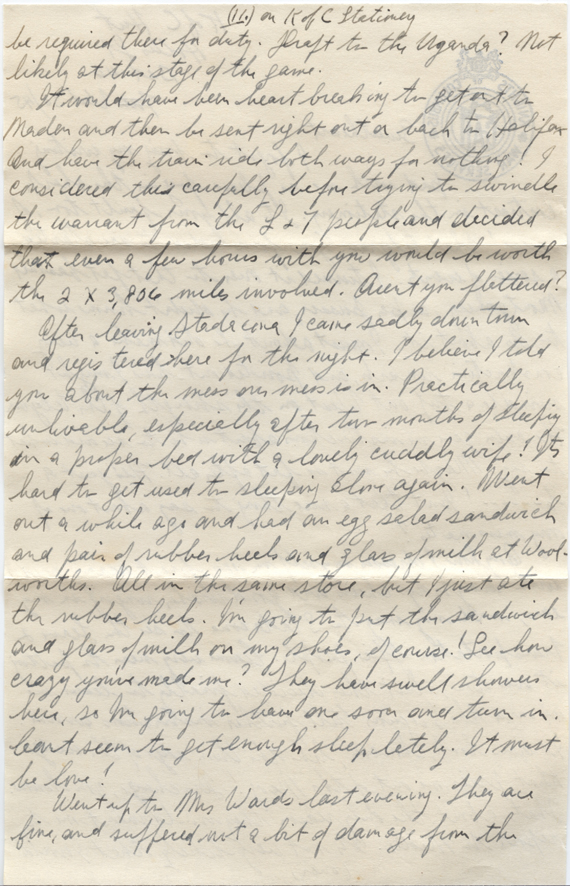 (11.) on K of C Stationery
be required there for duty. Draft to the Uganda? Not
likely at this stage of the game.
It would have been heart breaking to get out to
Maden and then be sent right out or back to Halifax
and have the train ride both ways for nothing! I
considered this carefully before trying to swindle
the warrant from the L & T people and decided
that even a few hours with you would be worth
the 2 X 3,806 miles involved. Arent you flattered?
After leaving Stadacona I came sadly down town
and registered here for the night. I believe I told
you about the mess our mess is in. Practically
unlivable, especially after two months of sleeping
in a proper bed with a lovely cuddly wife! Its
hard to get used to sleeping alone again. Went
out a while ago and had an egg salad sandwich
and pair of rubber heels and glass of milk at Wool-
worths. All in the same store, but I just ate
the rubber heels. I'm going to put the sandwich
and glass of milk on my shoes, of course! See how
crazy you've made me? They have swell showers
here, so I'm going to have one soon and turn in.
Cant seem to get enough sleep lately. It must
be love!
Went up to Mrs Wards last evening. They are
fine, and suffered not a bit of damage from the